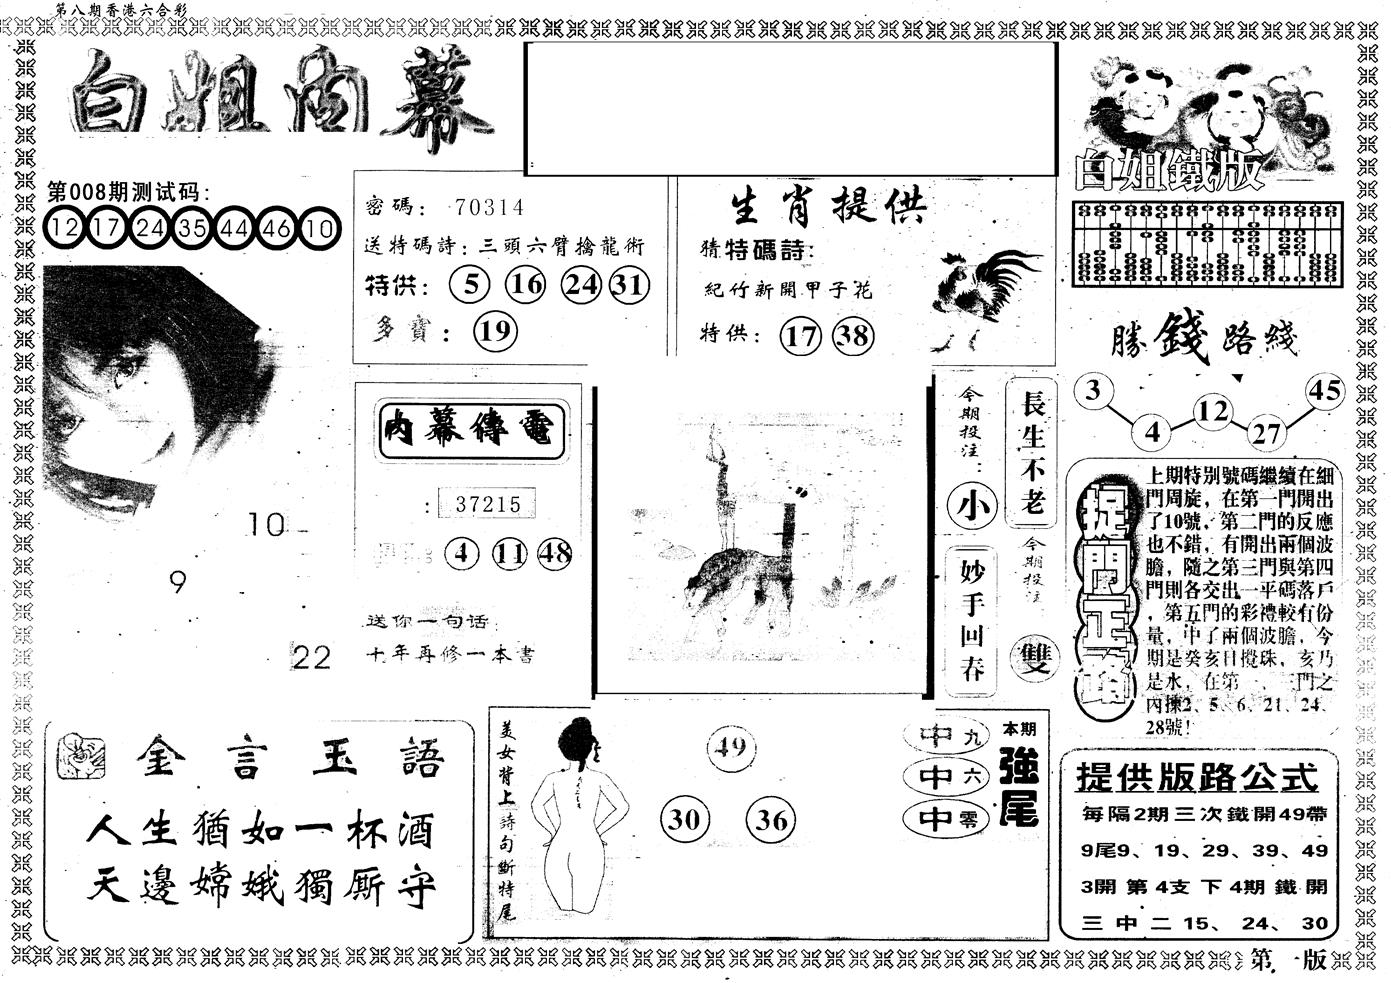 第八期香港六合彩
白姐内幕
第008期测试码:
12 17 24 35 44 46 10
密碼: 70314
送特碼詩:三頭六臂擒龍術
特供: 5 16 24 31
多寶: 19
生肖提供
猜特碼詩:
紀竹新開甲子花
特供: 17 38
白姐鐵版
勝錢路綫
3 4 12 27 45
10
9
22
内幕傳電
: 37215
4 11 48
送你一句话:
十年再修一本書
今期投注:小
長生不老
妙手回春
今期投注
雙
捉門正確
上期特别號碼繼續在細
門周旋，在第一門開出
了10號，第二門的反應
也不錯，有開出兩個波
膽，隨之第三門與第四
門則各交出一平碼落戶
，第五門的彩禮較有份
量，中了兩個波膽，今
期是癸亥日攪珠，亥乃
是水，在第一、三門之
内揀2、5、6、21、24、
28號！
金言玉語
人生猶如一杯酒
天邊嫦娥獨厮守
美女背上詩句斷特尾
49
30 36
中九
中六
中零
本期
強尾
提供版路公式
每隔2期三次鐵開49帶
9尾9、19、29、39、49
3開第4支下4期鐵開
三中二15、24、30
第一版